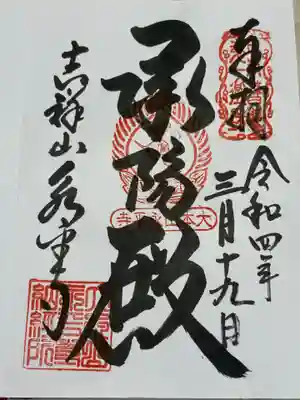 奉拝
令和四年
三月十九日
承陽殿
大本山永平寺
吉祥山永平寺